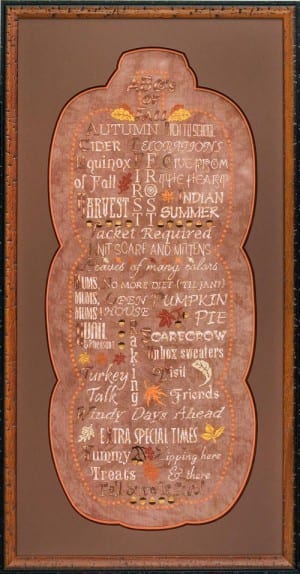 ABC's
OF
FALL
AUTUMN BACK TO SCHOOL
CIDER DECORATIONS
Equinox of Fall
FIRST FROST
GIVE FROM THE HEART
HARVEST
INDIAN SUMMER
Jacket Required
KNIT SCARF AND MITTENS
Leaves of many colors
MUMS, MUMS, MUMS!
NO MORE DIET ('TIL JAN!)
OPEN HOUSE
PUMPKIN PIE
QUAIL & Pheasant
Raking
SCARECROW
Turkey Talk
Unbox sweaters
Visit Friends
Windy Days Ahead
EXTRA SPECIAL TIMES
Yummy Treats
Zipping here & there